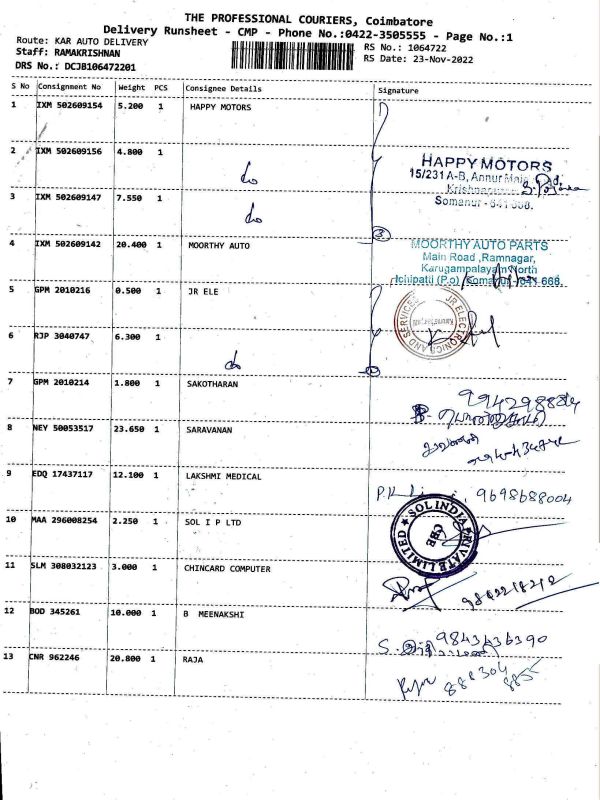 THE PROFESSIONAL COURIERS, Coimbatore
Delivery Runsheet - CMP - Phone No.:0422-3505555 - Page No.:1
Route: KAR AUTO DELIVERY
Staff: RAMAKRISHNAN
DRS No.: DCJB106472201
RS No.: 1064722
RS Date: 23-Nov-2022
S No Consignment No Weight PCS Consignee Details Signature
1 IXM 502609154 5.200 1 HAPPY MOTORS
2 IXM 502609156 4.800 1 do
HAPPY MOTORS
15/231 A-B, Annur Main
Krishnapuram
Somanur - 641 668.
3 IXM 502609147 7.550 1 do
3
4 IXM 502609142 20.400 1 MOORTHY AUTO
MOORTHY AUTO PARTS
Main Road ,Ramnagar,
Karugampalayam North
Ichipatti (P.o) Somanur - 641 668.
5 GPM 2010216 0.500 1 JR ELE
JR ELECTRONICS AND SERVICES
6 RJP 3040747 6.300 1 do
7 GPM 2010214 1.800 1 SAKOTHARAN
8 NEY 50053517 23.650 1 SARAVANAN
9 EDQ 17437117 12.100 1 LAKSHMI MEDICAL
9698688004
10 MAA 296008254 2.250 1 SOL I P LTD
SOL INDIA PRIVATE LIMITED
CBE
11 SLM 308032123 3.000 1 CHINCARD COMPUTER
12 BOD 345261 10.000 1 B MEENAKSHI
9843636390
13 CNR 962246 20.800 1 RAJA
888304
8855